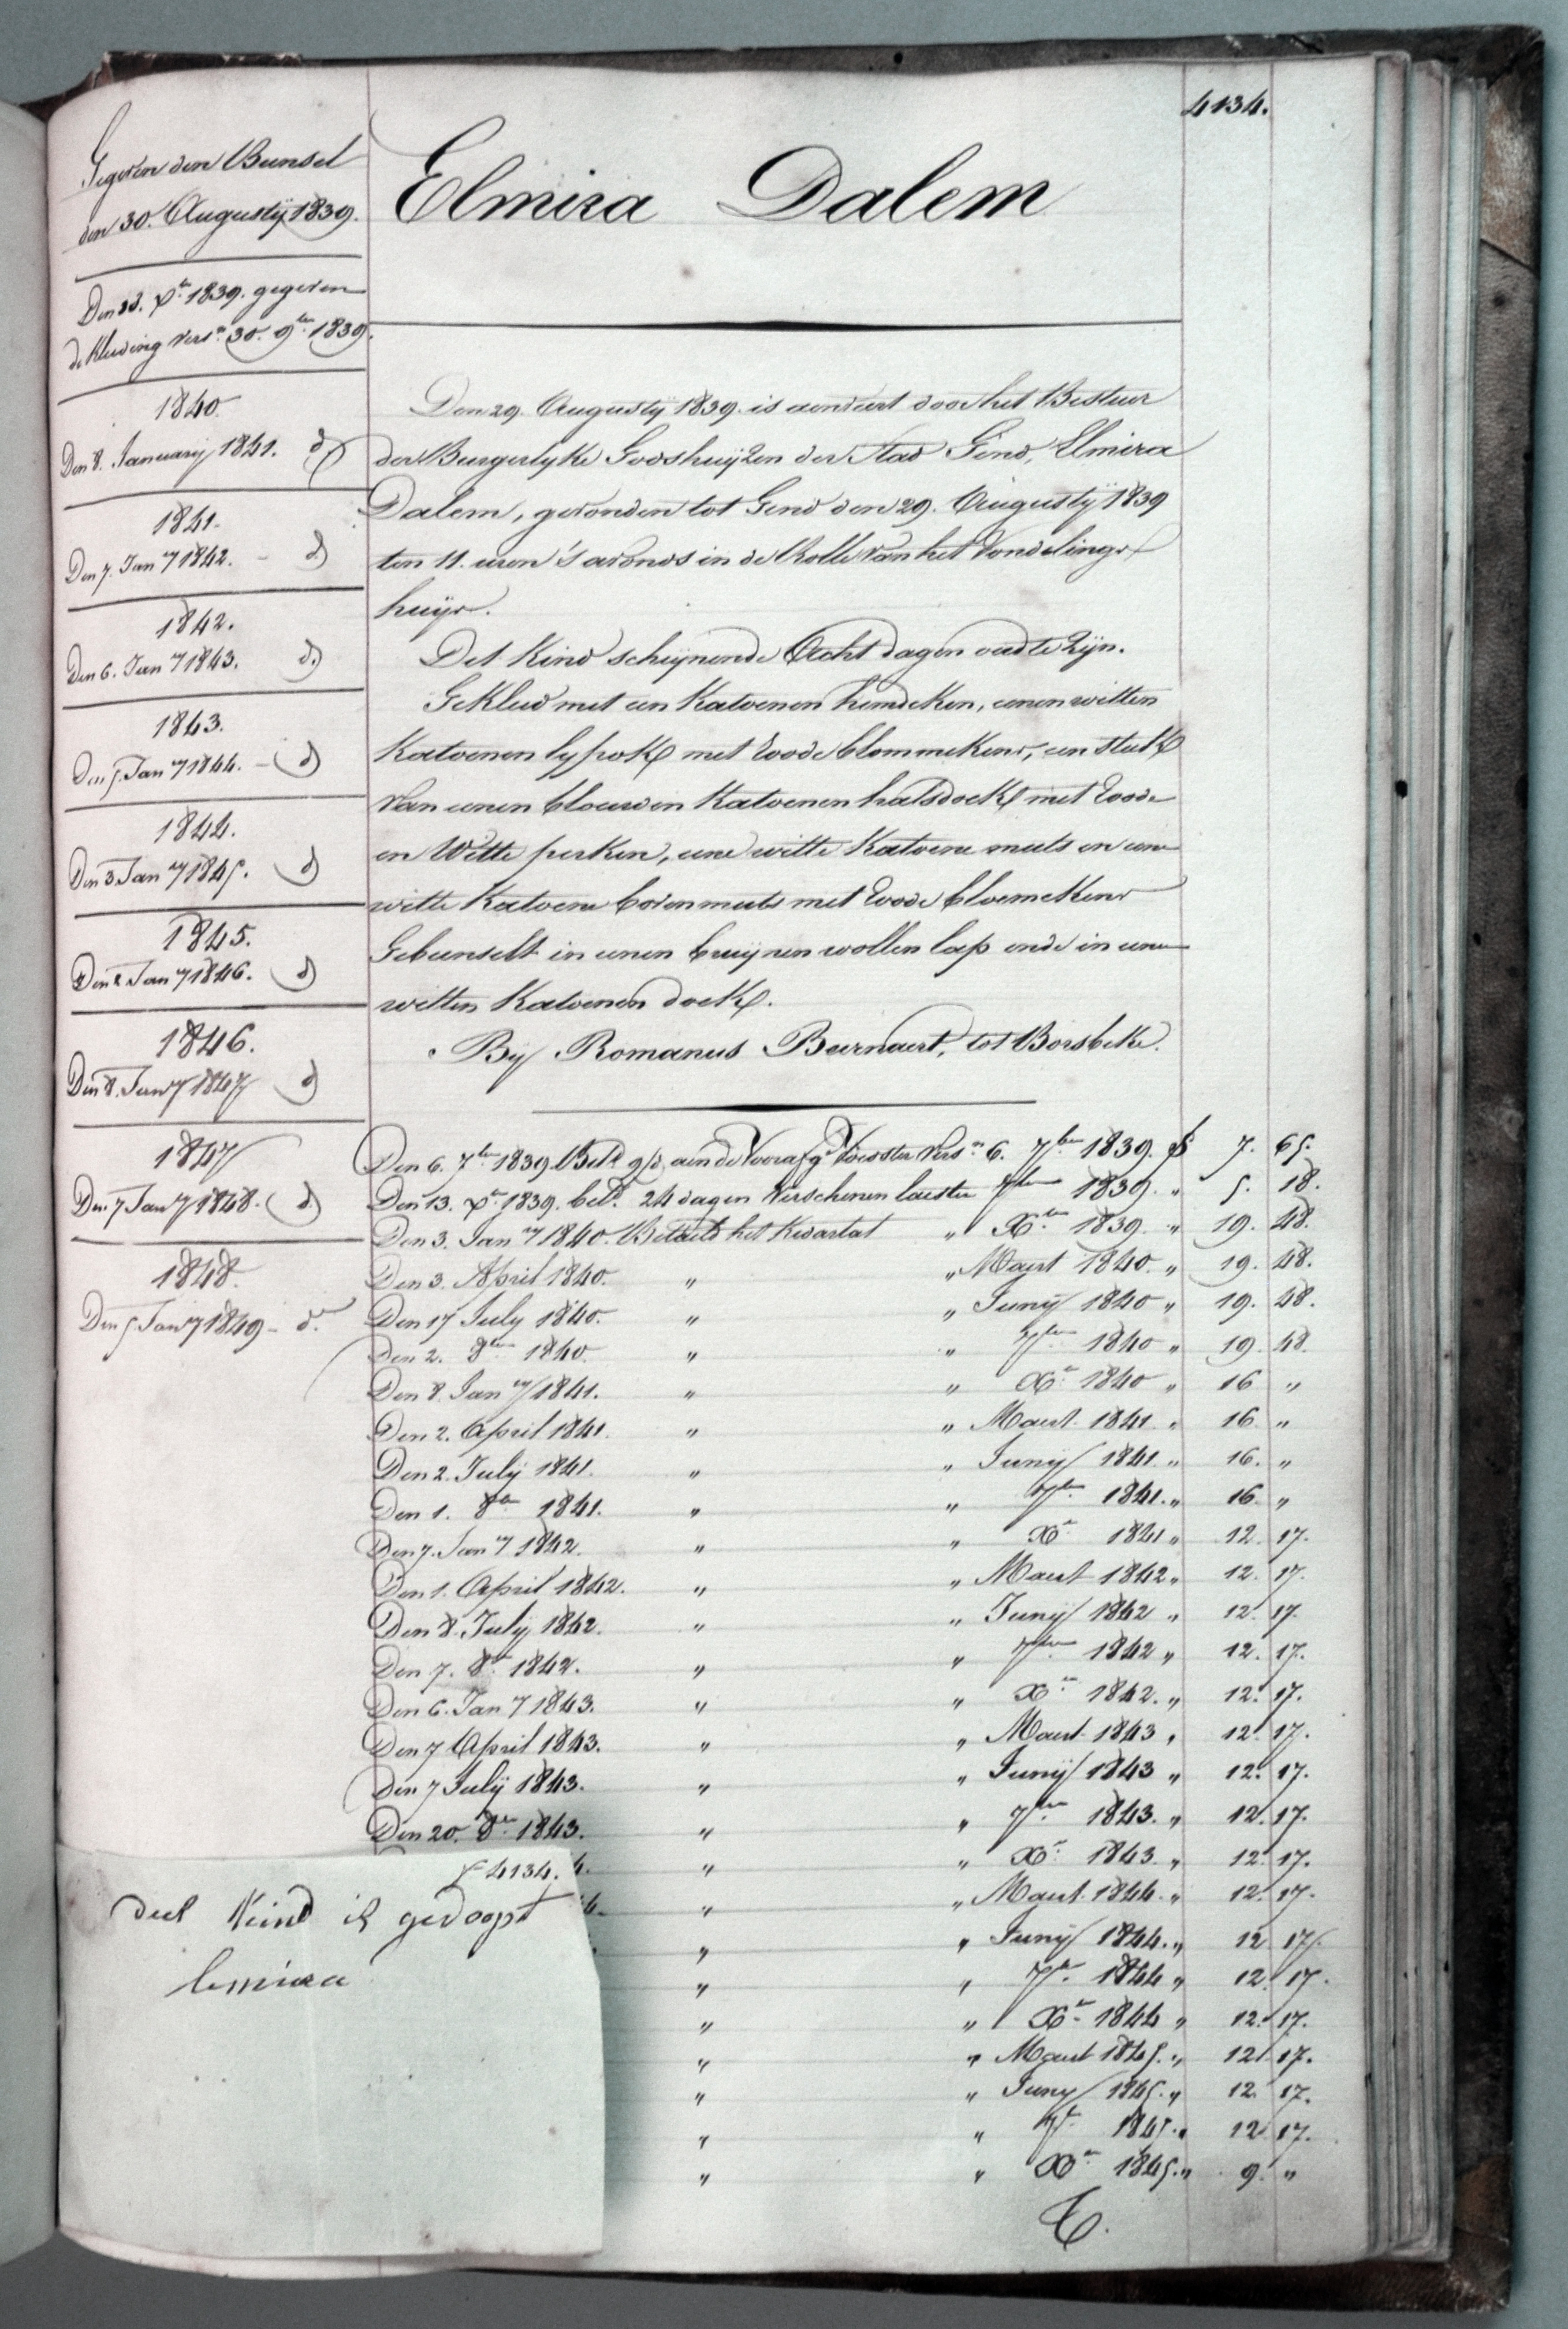 4134.
Gegeven den Bunsel
den 30. Augustij 1839.
Den 13. Xbr. 1839. gegeven
de Kleeding versn. 30. 9ber 1839.
1840.
Den 8. January 1841. d
1841.
Den 7. Jany 1842. - d
1842.
Den 6. Jany 1843. d.
1843.
Den 5. Jany 1844. - d
1844.
Den 3. Jany 1845. d
1845.
Den 2 Jany 1846. d
1846.
Den 8. Jany 1847 d
1847
Den 7 Jany 1848. d.
1848.
Den 5. Jany 1849 - d.
Elmira Dalem
Den 29. Augustij 1839. is aenveert door het Bestuer
der Burgerlyke Godshuyzen der Stad Gend, Elmira
Dalem, gevonden tot Gend den 29. Augustij 1839
ten 11. uren 's avonds in de Rolle van het Vondelings
huys.
Det Kind schynende Acht dagen oud te zyn.
Gekleed met een Katoenen hemdeken, eenen witten
Katoenen lyfrok met roode blommekens, een stuk
van eenen blauwen Katoenen halsdoek met roode
en Witte perken, eene witte Katoene muts en eene
witte Katoene bovenmuts met roode bloemekens
Gebunselt in eenen bruynen wollen lap ende in eenen
witten Katoenen doek.
By Romanus Beernaert, tot Borsbeke.
Den 6. 7ber 1839. Betd. g/d, aen de Voorafg. Voedster versn. 6. 7ber 1839. f 7. 65.
Den 13. Xbr. 1839. betd. 24 dagen Verschenen laeste 7ber 1839. " 5. 18.
Den 3. Jany 1840. Betaeld het Kwartael " Xber 1839. " 19. 48.
Den 3. April 1840. " " Maert 1840. " 19. 48.
Den 17 July 1840. " " Juny 1840 " 19. 48.
Den 2. 8ber 1840. " " 7ber 1840 " 19. 48.
Den 8. Jany 1841. " " Xbr. 1840 " 16 "
Den 2. April 1841. " " Maert 1841. " 16. "
Den 2. July 1841. " " Juny 1841. " 16. "
Den 1. 8ber 1841. " " 7ber 1841. " 16. "
Den 7. Jany 1842. " " Xbr. 1841 " 12. 17.
Den 1. April 1842. " " Maert 1842 " 12. 17.
Den 8. July 1842. " " Juny 1842 " 12. 17.
Den 7. 8br. 1842. " " 7ber 1842 " 12. 17.
Den 6. Jany 1843. " " Xbr. 1842. " 12. 17.
Den 7 April 1843. " " Maert 1843 " 12. 17.
Den 7 July 1843. " " Juny 1843 " 12. 17.
Den 20. 8br. 1843. " " 7ber 1843. " 12. 17.
4. " " Xbr. 1843. " 12. 17.
4. " " Maert 1844. " 12. 17.
" " Juny 1844. " 12 17.
" " 7br. 1844 " 12. 17.
" " Xbr. 1844 " 12. 17.
" " Maert 1845. " 12. 17.
" " Juny 1845. " 12. 17.
" " 7br. 1845. " 12. 17.
" " Xbr. 1845. " 9. "
4134.
deel Kind is gedoopt
lemiraa